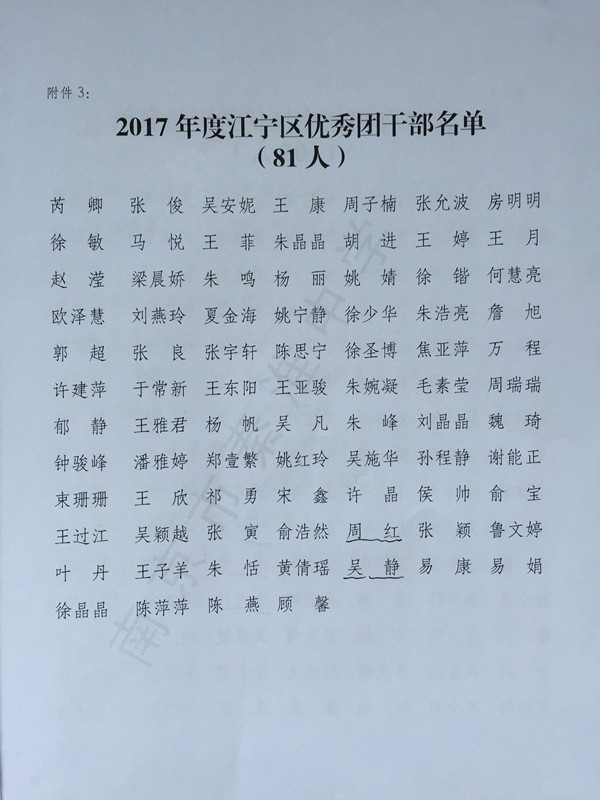 附件 3：
2017 年度江宁区优秀团干部名单
（81 人）
芮 卿 张 俊 吴安妮 王 康 周子楠 张允波 房明明
徐 敏 马 悦 王 菲 朱晶晶 胡 进 王 婷 王 月
赵 滢 梁晨娇 朱 鸣 杨 丽 姚 婧 徐 锴 何慧亮
欧泽慧 刘燕玲 夏金海 姚宁静 徐少华 朱浩亮 詹 旭
郭 超 张 良 张宇轩 陈思宁 徐圣博 焦亚萍 万 程
许建萍 于常新 王东阳 王亚骏 朱婉凝 毛素莹 周瑞瑞
郁 静 王雅君 杨 帆 吴 凡 朱 峰 刘晶晶 魏 琦
钟骏峰 潘雅婷 郑壹繁 姚红玲 吴施华 孙程静 谢能正
束珊珊 王 欣 祁 勇 宋 鑫 许 晶 侯 帅 俞 宝
王过江 吴颖越 张 寅 俞浩然 周 红 张 颖 鲁文婷
叶 丹 王子羊 朱 恬 黄倩瑶 吴 静 易 康 易 娟
徐晶晶 陈萍萍 陈 燕 顾 馨
南京市秦淮中学